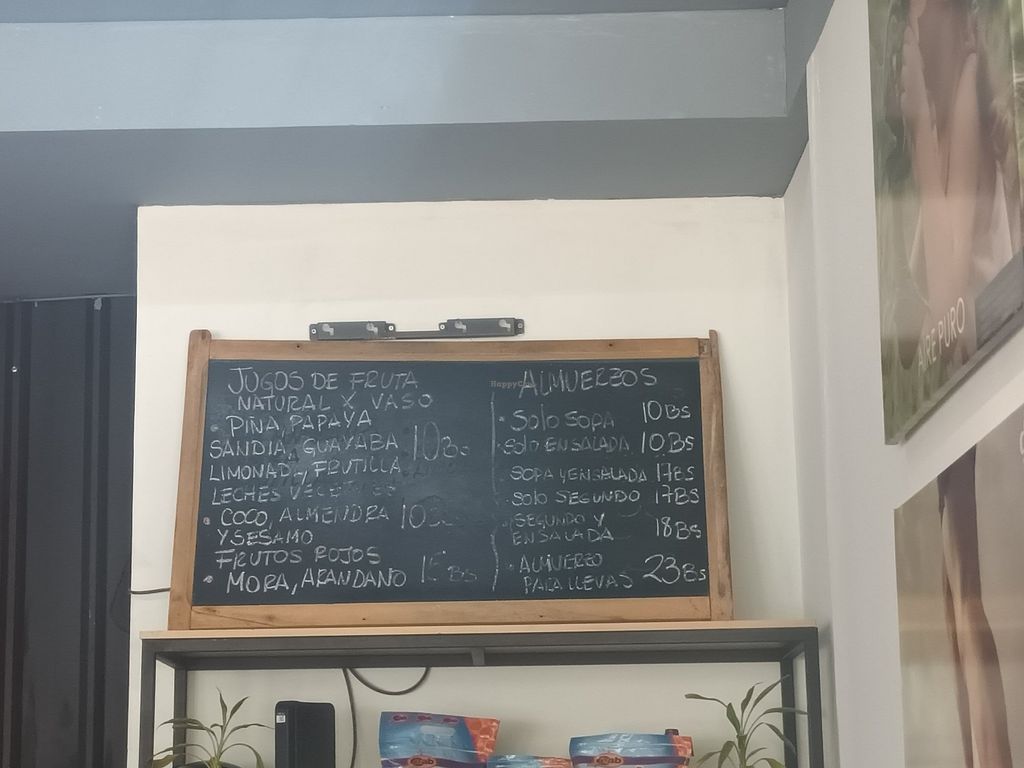 JUGOS DE FRUTA
NATURAL X VASO
• PIÑA, PAPAYA
SANDIA, GUAYABA 10Bs
LIMONADA, FRUTILLA
LECHES VEGETALES
• COCO, ALMENDRA 10Bs
Y SESAMO
FRUTOS ROJOS
• MORA, ARANDANO Bs
ALMUERZOS
• SOLO SOPA 10Bs
• SOLO ENSALADA 10Bs
• SOPA Y ENSALADA 17BS
• SOLO SEGUNDO 17BS
• SEGUNDO Y
ENSALADA 18Bs
• ALMUERZO
PARA LLEVAS 23Bs
HappyCow
AIRE PURO